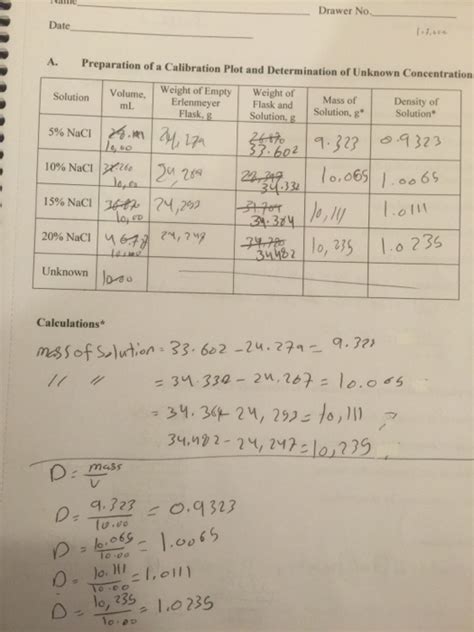 Name
Drawer No.
Date
A. Preparation of a Calibration Plot and Determination of Unknown Concentration
Solution Volume, mL Weight of Empty Erlenmeyer Flask, g Weight of Flask and Solution, g Mass of Solution, g* Density of Solution*
5% NaCl 10,00 24,279 33.602 9.323 0.9323
10% NaCl 10,00 34.332 10,065 1.0065
15% NaCl 10,00 24,253 10,111 1.0111
20% NaCl 24,247 34.482 10,235 1.0235
Unknown 10.00
Calculations*
mass of Solution = 33.602 - 24.279 = 9.323
11 11 = 34.332 - 24.267 = 10.065
= 10,111
34.482 - 24,247 = 10,235
D = mass / V
D = 9.323 / 10.00 = 0.9323
D = 10.065 / 10.00 = 1.0065
D = 10.111 / 10.00 = 1.0111
D = 10,235 / 10.00 = 1.0235